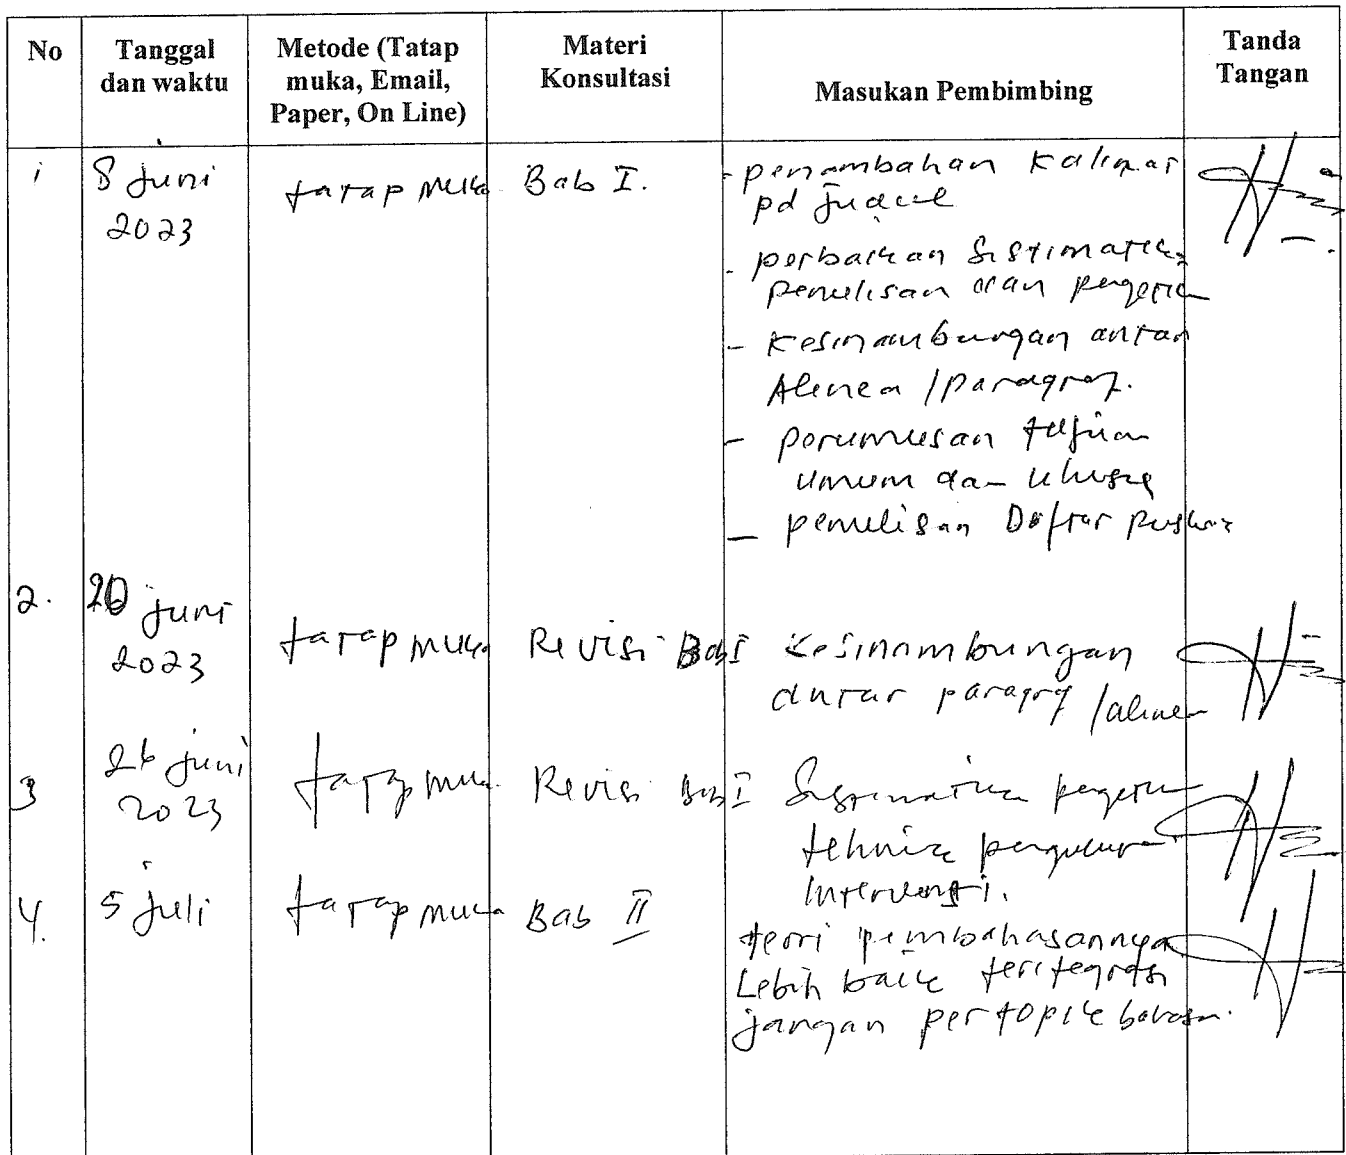 No
Tanggal
dan waktu
Metode (Tatap
muka, Email,
Paper, On Line)
Materi
Konsultasi
Masukan Pembimbing
Tanda
Tangan
1
8 Juni
2023
tatap muka
Bab I.
- penambahan kalimat
pd judul
- perbaikan Sistimatika
penulisan dan
- Kesinambungan antar
Alinea / paragraf.
- perumusan tujuan
umum dan khusus
- penulisan Daftar pustaka
2.
20 juni
2023
tatap muka
Revisi Bab I
Kesinambungan
antar paragraf / alinea
3
26 juni
2023
tatap muka
Revisi Bab I
Sistimatika
tehnik
Intervensi.
4.
5 juli
tatap muka
Bab II
teori pembahasannya
Lebih baik teritegrasi
jangan pertopik bahasan.